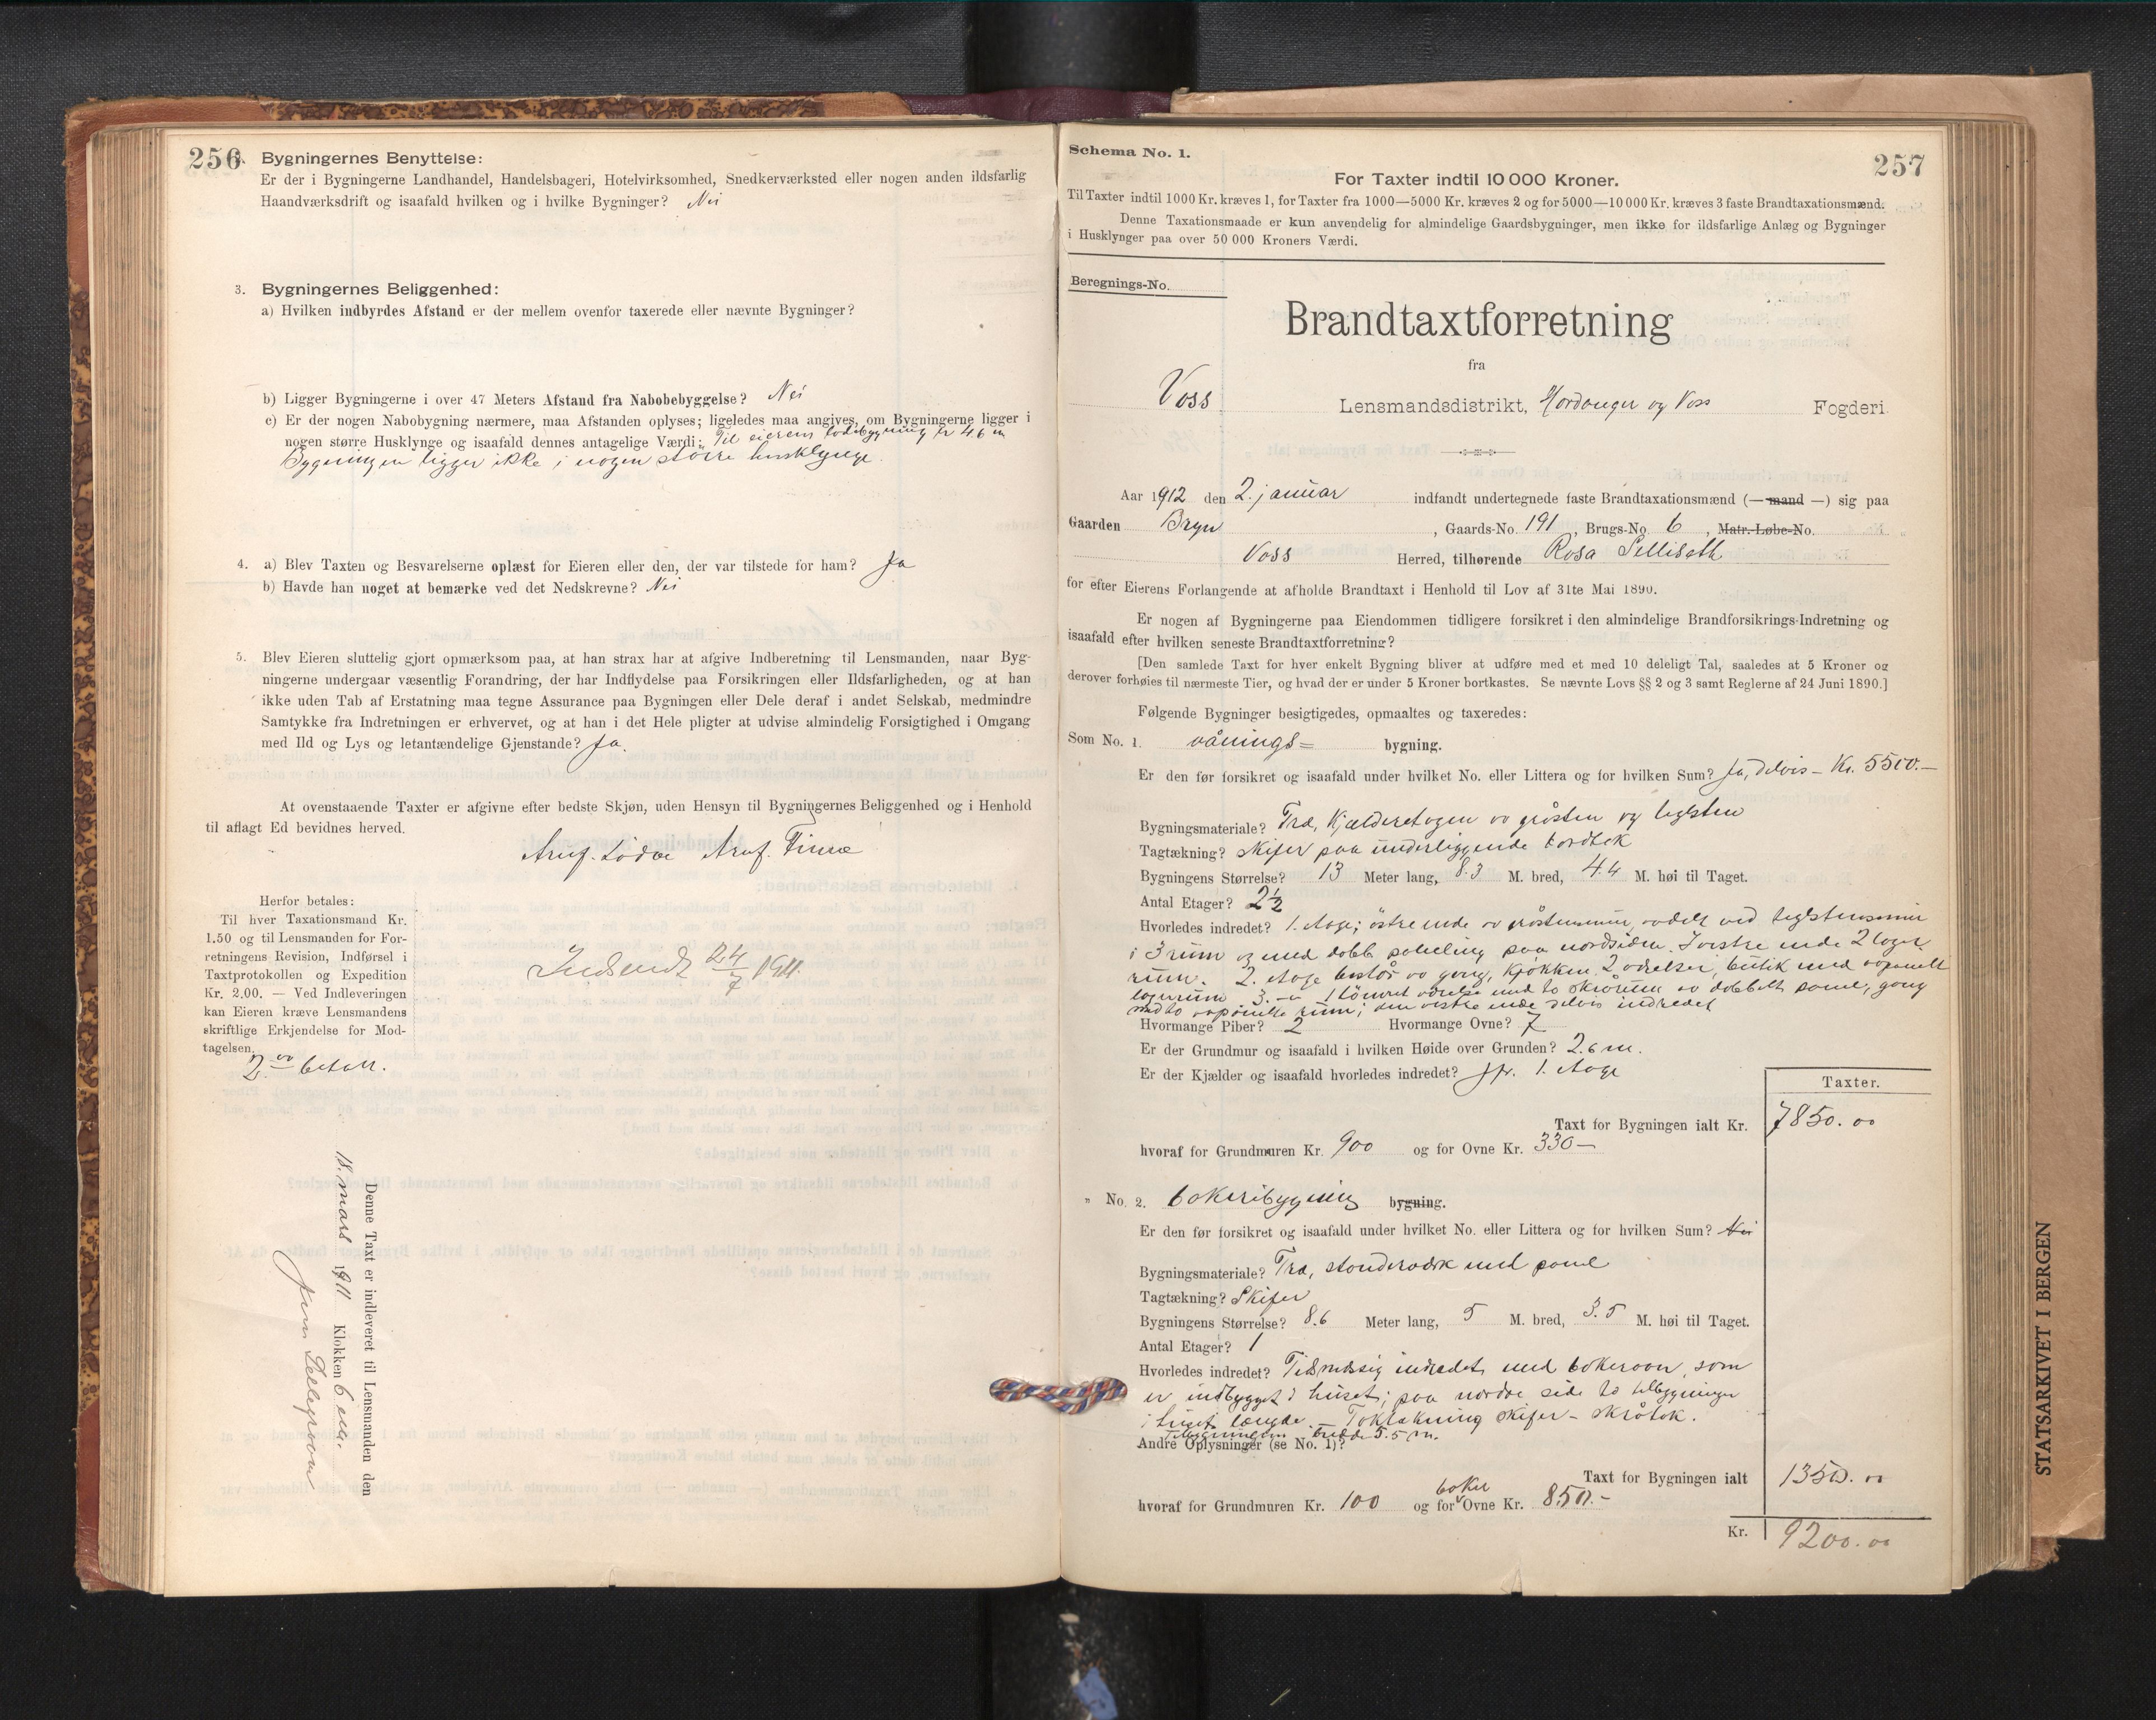 256
2. Bygningernes Benyttelse:
Er der i Bygningerne Landhandel, Handelsbageri, Hotelvirksomhed, Snedkerværksted eller nogen anden ildsfarlig
Haandværksdrift og isaafald hvilken og i hvilke Bygninger? Nei
3. Bygningernes Beliggenhed:
a) Hvilken indbyrdes Afstand er der mellem ovenfor taxerede eller nævnte Bygninger?
b) Ligger Bygningerne i over 47 Meters Afstand fra Nabobebyggelse? Nei
c) Er der nogen Nabobygning nærmere, maa Afstanden oplyses; ligeledes maa angives, om Bygningerne ligger i
nogen større Husklynge og isaafald dennes antagelige Værdi: Til eierens lodebygning er 46 m
Bygningen ligger ikke i nogen større husklynge.
4. a) Blev Taxten og Besvarelserne oplæst for Eieren eller den, der var tilstede for ham? Ja
b) Havde han noget at bemærke ved det Nedskrevne? Nei
5. Blev Eieren sluttelig gjort opmærksom paa, at han strax har at afgive Indberetning til Lensmanden, naar Byg-
ningerne undergaar væsentlig Forandring, der har Indflydelse paa Forsikringen eller Ildsfarligheden, og at han
ikke uden Tab af Erstatning maa tegne Assurance paa Bygningen eller Dele deraf i andet Selskab, medmindre
Samtykke fra Indretningen er erhvervet, og at han i det Hele pligter at udvise almindelig Forsigtighed i Omgang
med Ild og Lys og letantændelige Gjenstande? Ja.
At ovenstaaende Taxter er afgivne efter bedste Skjøn, uden Hensyn til Bygningernes Beliggenhed og i Henhold
til aflagt Ed bevidnes herved.
Arnf. Arnf. Finne
Herfor betales:
Til hver Taxationsmand Kr.
1.50 og til Lensmanden for For-
retningens Revision, Indførsel i
Taxtprotokollen og Expedition
Kr. 2.00. — Ved Indleveringen
kan Eieren kræve Lensmandens
skriftlige Erkjendelse for Mod-
tagelsen.
2.00 betalt.
Indsendt 24/7 1911.
Denne Taxt er indleveret til Lensmanden den
18. mars 1911 Klokken 6 em.
Schema No. 1.
257
For Taxter indtil 10 000 Kroner.
Til Taxter indtil 1000 Kr. kræves 1, for Taxter fra 1000—5000 Kr. kræves 2 og for 5000—10 000 Kr. kræves 3 faste Brandtaxationsmænd.
Denne Taxationsmaade er kun anvendelig for almindelige Gaardsbygninger, men ikke for ildsfarlige Anlæg og Bygninger
i Husklynger paa over 50 000 Kroners Værdi.
Beregnings-No.
Brandtaxtforretning
fra
Voss Lensmandsdistrikt, Hardanger og Voss Fogderi
Aar 1912 den 2. januar indfandt undertegnede faste Brandtaxationsmænd (— mand —) sig paa
Gaarden Bryn, Gaards-No. 191, Brugs-No. 6, Matr.-Løbe-No.
Voss Herred, tilhørende Rosa
for efter Eierens Forlangende at afholde Brandtaxt i Henhold til Lov af 31te Mai 1890.
Er nogen af Bygningerne paa Eiendommen tidligere forsikret i den almindelige Brandforsikrings-Indretning og
isaafald efter hvilken seneste Brandtaxtforretning?
[Den samlede Taxt for hver enkelt Bygning bliver at udføre med et med 10 deleligt Tal, saaledes at 5 Kroner og
derover forhøies til nærmeste Tier, og hvad der er under 5 Kroner bortkastes. Se nævnte Lovs §§ 2 og 3 samt Reglerne af 24 Juni 1890.]
Følgende Bygninger besigtigedes, opmaaltes og taxeredes:
Som No. 1. vånings= bygning.
Er den før forsikret og isaafald under hvilket No. eller Littera og for hvilken Sum? Ja, delvis – Kr. 5500.–
Bygningsmateriale? Træ, Kjælderetagen av gråsten og teglsten
Tagtækning? skifer paa underliggende bordtak
Bygningens Størrelse? 13 Meter lang, 8.3 M. bred, 4.4 M. høi til Taget.
Antal Etager? 2½
Hvorledes indredet? 1. etage; östre ende av gråstensmur, avdelt ved teglstensmur
i 3 rum og med dobb paneling paa nordsiden. I vestre ende 2 lager-
rum. 2. etage består av gang, kjøkken, 2 værelser, butik med avpanelt
lagerrum. 3. –"– 1 tömret værelse med to skrårum av dobbelt panel, gang
med to avpanelte rum; den vestre ende delvis indredet
Hvormange Piber? 2 Hvormange Ovne? 7
Er der Grundmur og isaafald i hvilken Høide over Grunden? 2.6 m.
Er der Kjælder og isaafald hvorledes indredet? Jfr. 1. etage
Taxter.
Taxt for Bygningen ialt Kr. 7850.00
hvoraf for Grundmuren Kr. 900 og for Ovne Kr. 330–
" No. 2. bakeribygning bygning.
Er den før forsikret og isaafald under hvilket No. eller Littera og for hvilken Sum? Nei
Bygningsmateriale? Træ, standerværk med panel
Tagtækning? Skifer
Bygningens Størrelse? 8.6 Meter lang, 5 M. bred, 3.5 M. høi til Taget.
Antal Etager? 1
Hvorledes indredet? Tidsmæssig indredet med bakerovn, som
er indbygget i huset; paa nordre side to tilbygninger
i huset længde. – Taktækning skifer – skråtak.
Tilbygningens bredde 5.5 m.
Andre Oplysninger (se No. 1)?
Taxt for Bygningen ialt 1350.00
hvoraf for Grundmuren Kr. 100 og for baker Ovne Kr. 850.–
Kr. 9200.00
STATSARKIVET I BERGEN